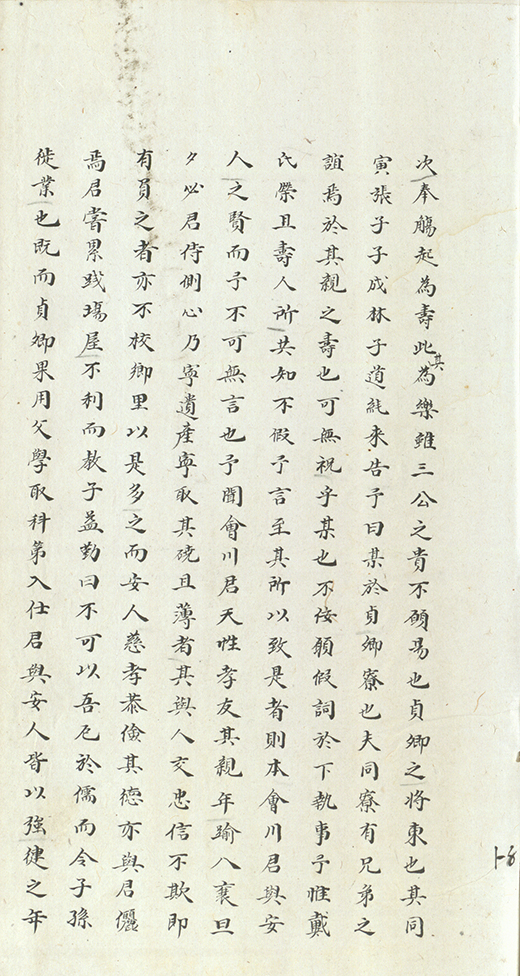 次奉觴起為壽此其為樂雖三公之貴不願易也貞卿之將東也其同
寅張子子成林子道純來告予曰某於貞卿寮也夫同寮有兄弟之
誼焉於其親之壽也可無祝乎某也不佞願假詞於下執事予惟戴
氏榮且壽人所共知不假予言至其所以致是者則本會川君與安
人之賢而予不可無言也予聞會川君天性孝友其親年踰八袠旦
夕必君侍側心乃寧遺產寧取其磽且薄者其與人交忠信不欺即
有負之者亦不校鄉里以是多之而安人慈孝恭儉其德亦與君儷
焉君嘗累戰場屋不利而教子益勤曰不可以吾厄於儒而令子孫
徙業也既而貞卿果用父學取科第入仕君與安人皆以強健之年
1-8